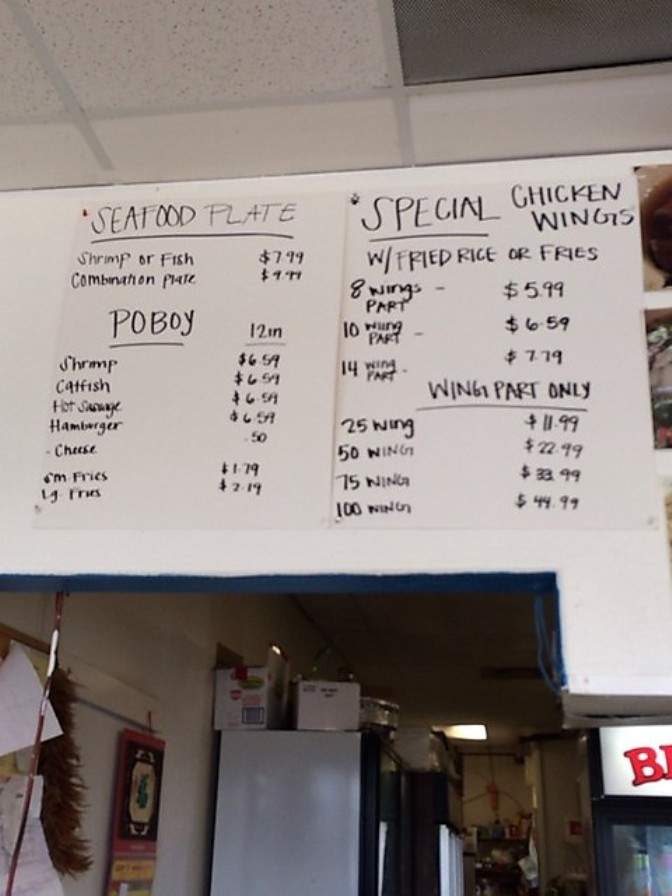 SEAFOOD PLATE
Shrimp or Fish $7.99
Combination Plate $9.99
POBOY 12in
Shrimp $6.59
Catfish $6.59
Hot Sausage $6.59
Hamburger $6.59
- Cheese .50
Sm. Fries $1.79
Lg. Fries $2.19
SPECIAL CHICKEN WINGS
W/ FRIED RICE OR FRIES
8 Wings PART - $5.99
10 Wing PART - $6.59
14 Wing PART - $7.79
WING PART ONLY
25 Wing $11.99
50 WING $22.99
75 WING $33.99
100 WING $44.99